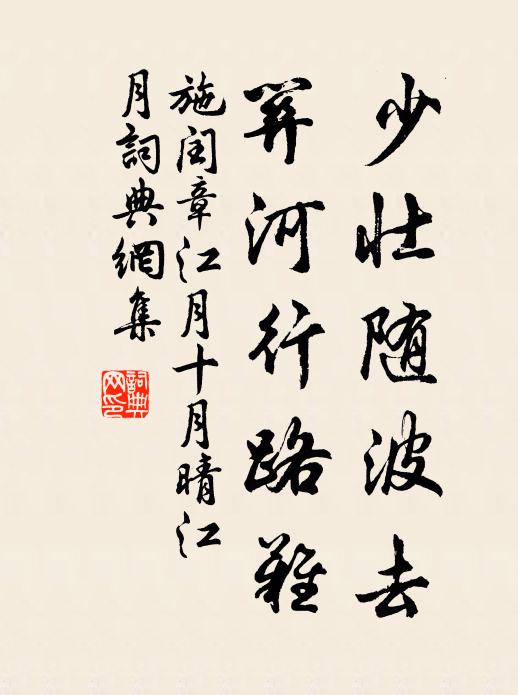 少壮随波去
關河行路難
施闰章江月十月晴江
月詞典網集
詞典
网印